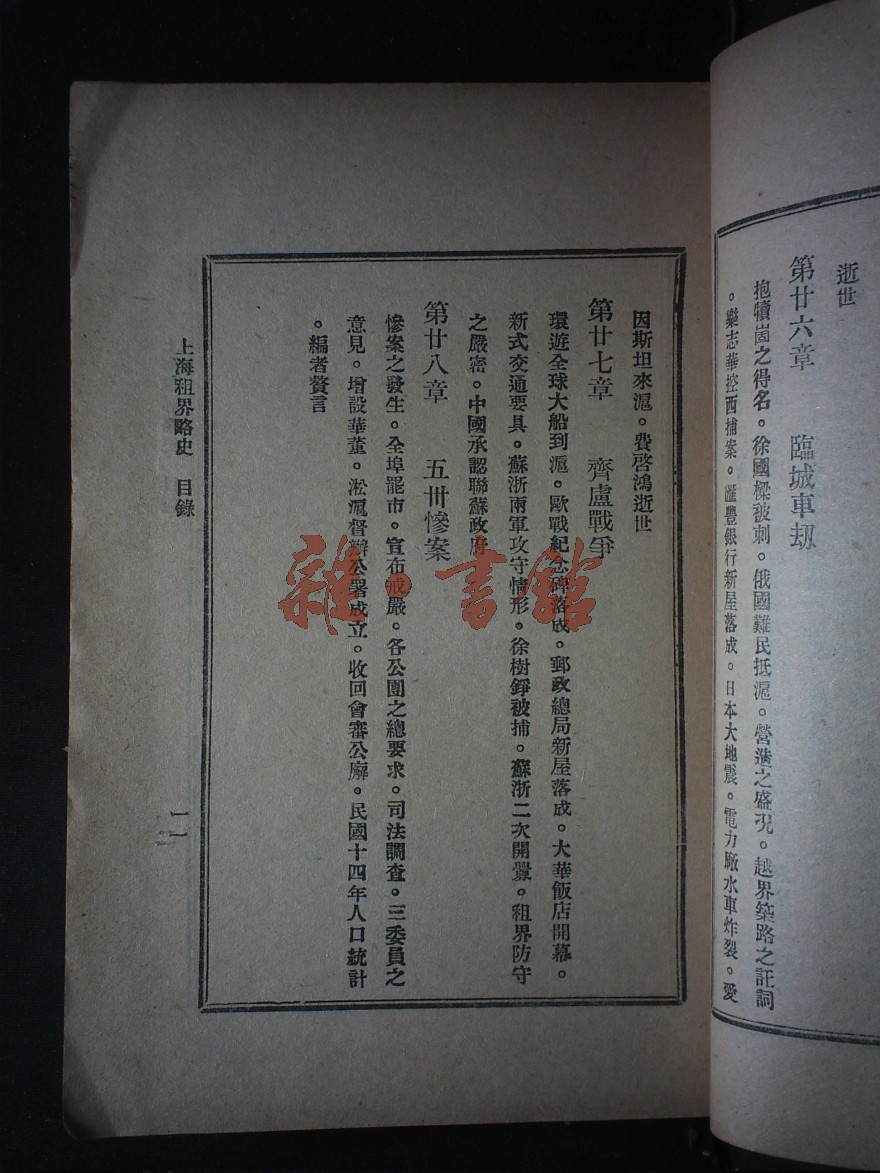 逝世
第廿六章　臨城車刼
抱犢崮之得名。徐國樑被刺。俄國難民抵滬。營造之盛況。越界築路之託詞
。樂志華控西捕案。匯豐銀行新屋落成。日本大地震。電力廠水車炸裂。愛
因斯坦來滬。費啓鴻逝世
第廿七章　齊盧戰爭
環遊全球大船到滬。歐戰紀念碑落成。郵政總局新屋落成。大華飯店開幕。
新式交通要具。蘇浙兩軍攻守情形。徐樹錚被捕。蘇浙二次開釁。租界防守
之嚴密。中國承認聯蘇政府
第廿八章　五卅慘案
慘案之發生。全埠罷市。宣布戒嚴。各公團之總要求。司法調查。三委員之
意見。增設華董。淞滬督辦公署成立。收回會審公廨。民國十四年人口統計
。編者贅言
上海租界略史　目錄
一一
雜·書館